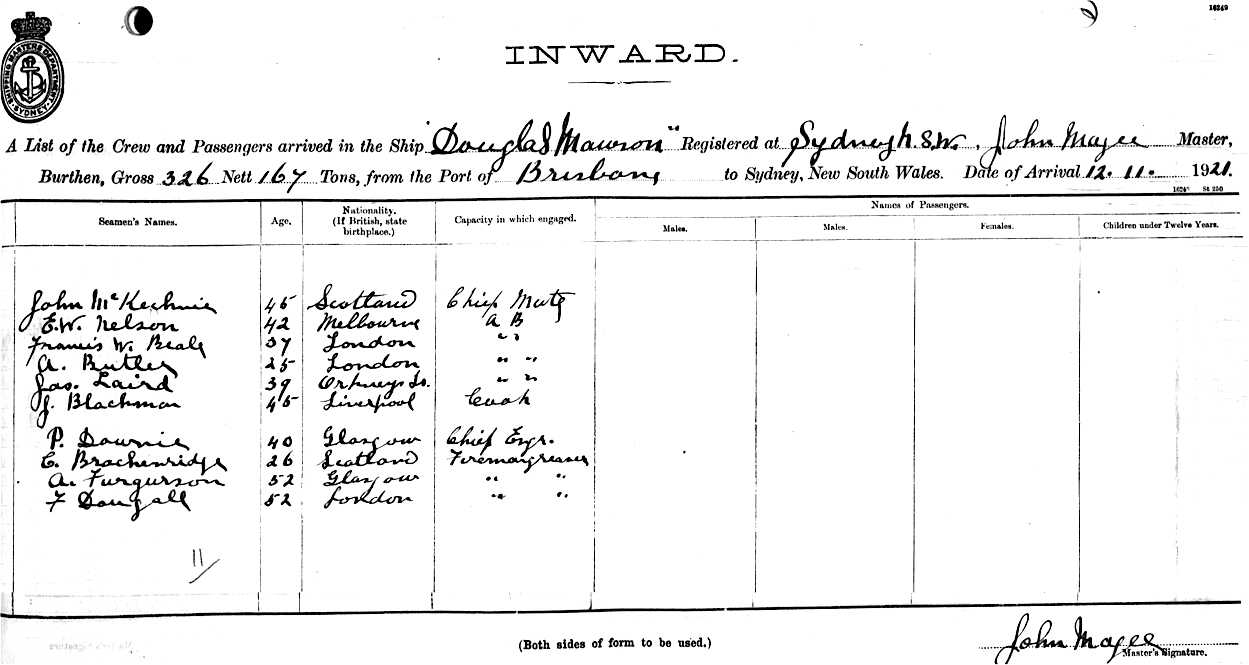 16249
SHIPPING MASTERS DEPARTMENT SYDNEY
INWARD.
A List of the Crew and Passengers arrived in the Ship "Douglas Mawson" Registered at Sydney N.S.W. John Magee Master,
Burthen, Gross 326 Nett 167 Tons, from the Port of Brisbane to Sydney, New South Wales. Date of Arrival 12.11. 1921.
1624 St 250
Seamen's Names. Age. Nationality. (If British, state birthplace.) Capacity in which engaged. Names of Passengers.
Males. Males. Females. Children under Twelve Years.
John McKechnie 45 Scotland Chief Mate
E.W. Nelson 42 Melbourne A B
Francis W. Beale 37 London " "
A. Butler 25 London " "
Jas. Laird 39 Orkneys Is. " "
J. Blackman 45 Liverpool Cook
P. Downie 40 Glasgow Chief Engr.
C. Brackenridge 26 Scotland Fireman greaser
A. Furgurson 52 Glasgow " "
F Dougall 52 London " "
11/
(Both sides of form to be used.)
John Magee
Master's Signature.